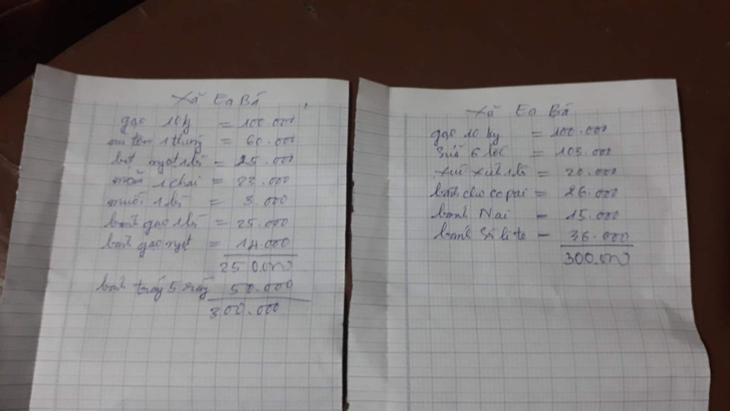 Xã Ea Bá
gạo 10kg = 100.000
mì tôm 1 thùng = 60.000
bột ngọt 1 bì = 25.000
mắm 1 chai = 23.000
muối 1 bì = 3.000
bánh gạo 1 bì = 25.000
bánh gạo ngọt = 14.000
250.000
bánh tráng 5 50.000
300.000
Xã Ea Bá
gạo 10 kg = 100.000
Sữa 6 lốc = 103.000
xúc xích 1 bì = 20.000
bánh cho co pai = 26.000
bánh Nai = 15.000
bánh Sô li te = 36.000
300.000